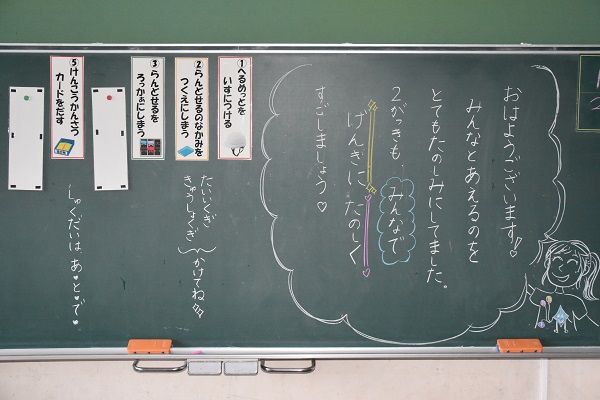 おはようございます!
みんなとあえるのを
とてもたのしみにしてました。
2がっきも、みんなで
げんきに たのしく
すごしましょう♡
①へるめっとを
いすにつける
②らんどせるのなかみを
つくえにしまう
③らんどせるを
ろっかぁにしまう
⑤けんこうかんさつ
カードをだす
たいいくぎ
きゅうしょくぎ
かけてね
しゅくだいは あ・と・で・